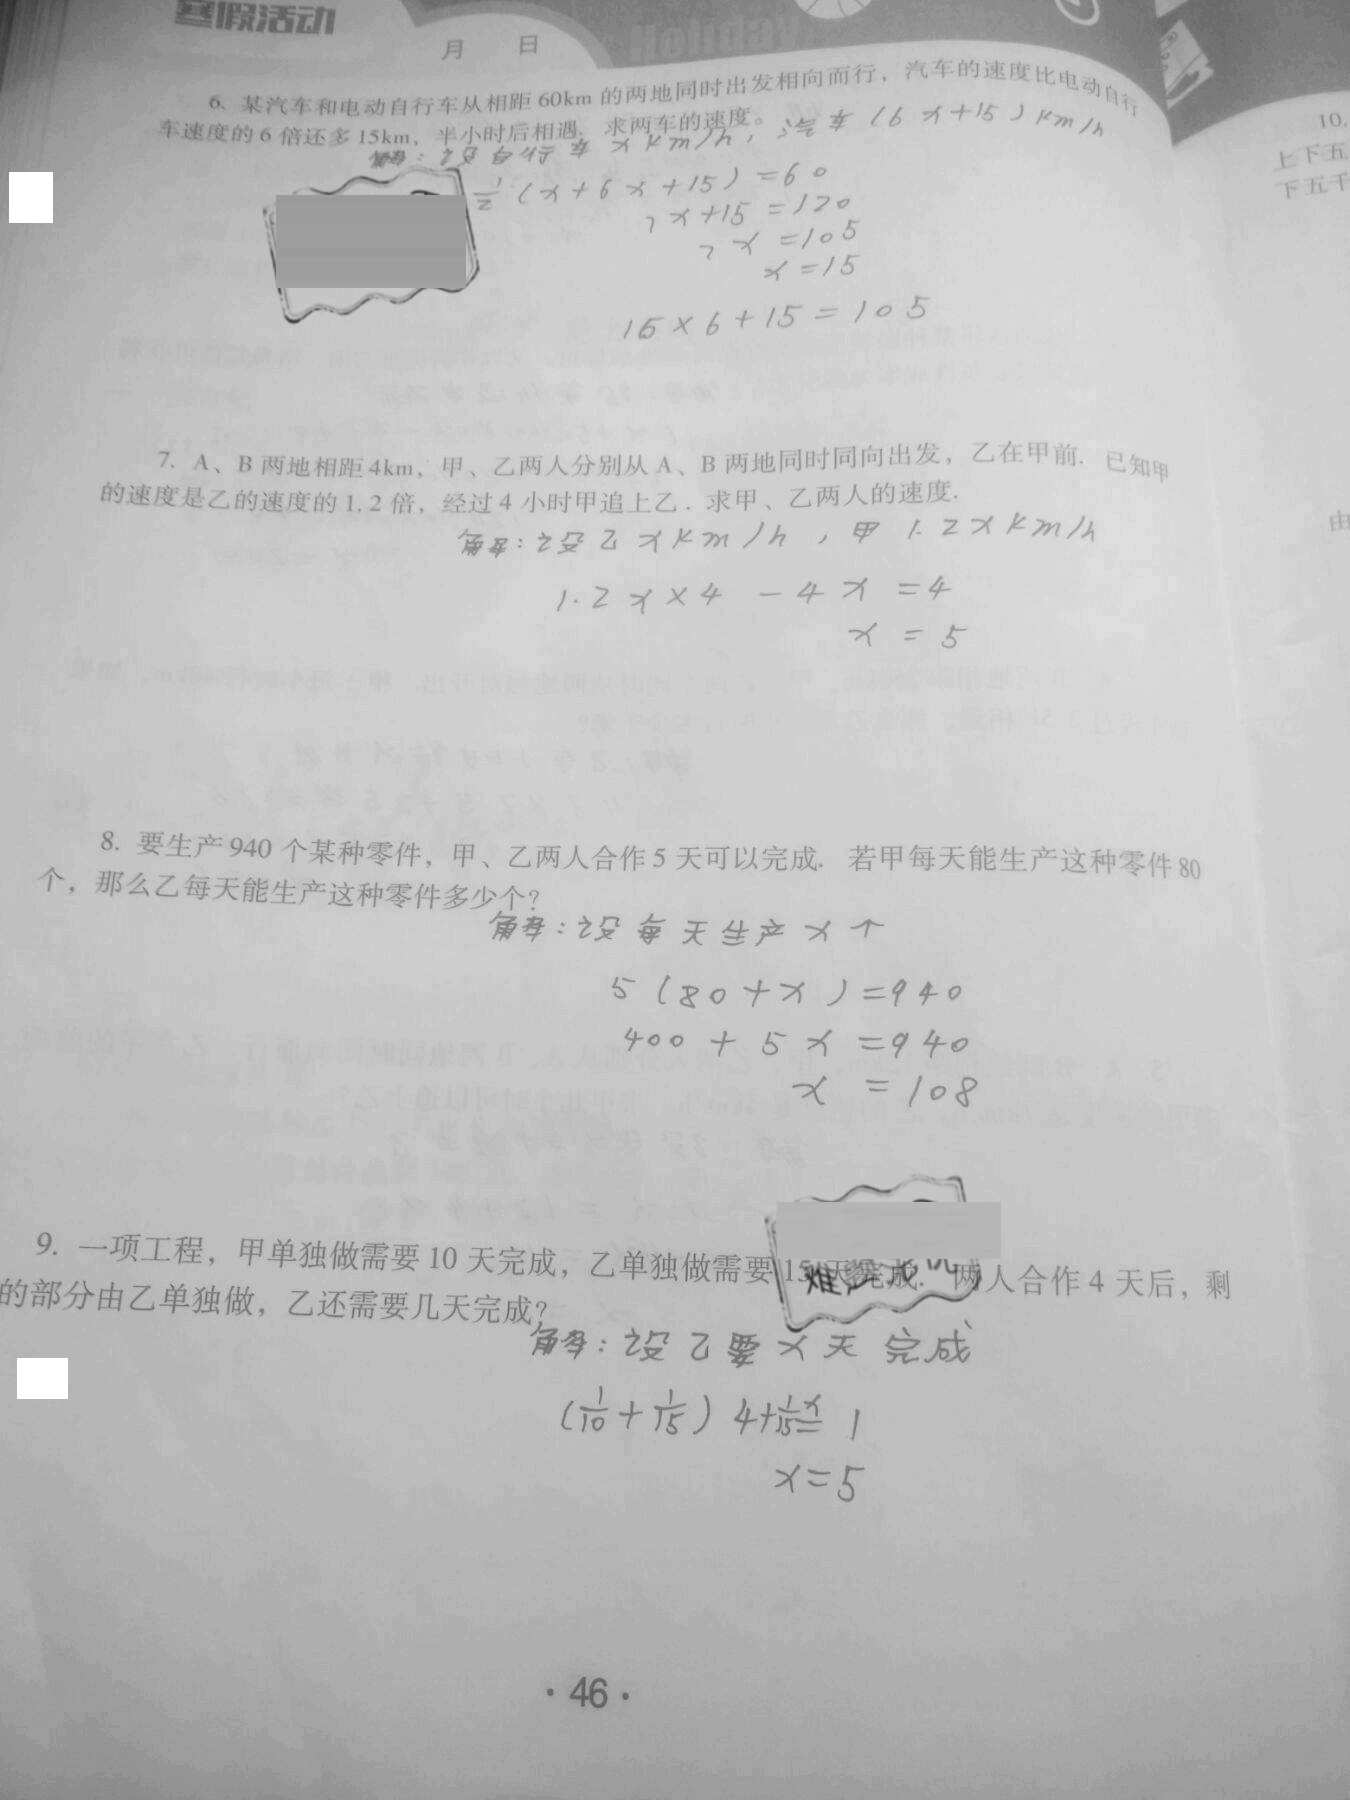 寒假活动
Holiday
月 日
6、某汽车和电动自行车从相距60km的两地同时出发相向而行，汽车的速度比电动自行
车速度的6倍还多15km，半小时后相遇．求两车的速度。
解：设自行车xkm/h，汽车(6x+15)km/h
1/2(x+6x+15)=60
7x+15=120
7x=105
x=15
15×6+15=105
7. A、B两地相距4km，甲、乙两人分别从A、B两地同时同向出发，乙在甲前．已知甲
的速度是乙的速度的1.2倍，经过4小时甲追上乙．求甲、乙两人的速度．
解：设乙xkm/h，甲1.2xkm/h
1.2x×4-4x=4
x=5
8. 要生产940个某种零件，甲、乙两人合作5天可以完成．若甲每天能生产这种零件80
个，那么乙每天能生产这种零件多少个？
解：设每天生产x个
5(80+x)=940
400+5x=940
x=108
9. 一项工程，甲单独做需要10天完成，乙单独做需要15天完成．两人合作4天后，剩
的部分由乙单独做，乙还需要几天完成？
解：设乙要x天完成
(1/10+1/15)4+1/15x=1
x=5
·46·
10.
上下五
下五千
由